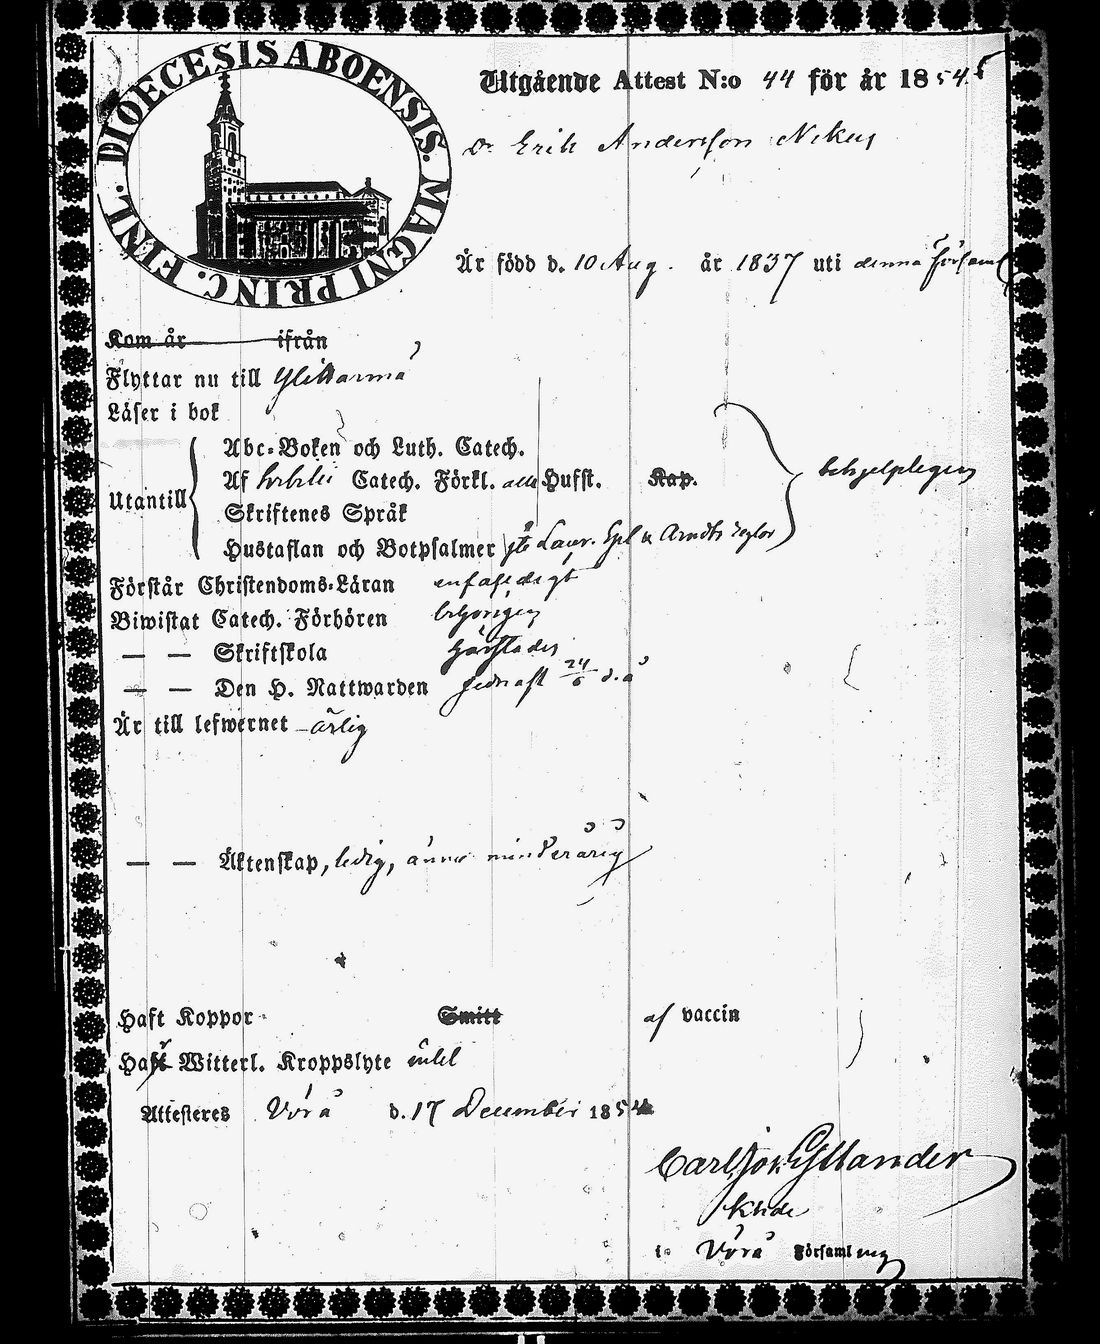 DIOECESIS ABOENSIS. MAGNI PRINC. FINL.
Utgående Attest N:o 44 för år 1854.
Dr Erik Andersson Nikus
Är född d. 10 Aug. år 1837 uti denna Församl
Kom år ifrån
Flyttar nu till Ylikarmå
Läser i bok
Utantill
Abc-Boken och Luth. Catech.
Af Catech. Förkl. alla Hufst. Kap.
behjelpligen
Skriftenes Språk
Hustaflan och Botpsalmer jte Laur. Spl & Arndts
Förstår Christendoms-Läran enfaldigt
Biwistat Catech. Förhören behörigen
— — Skriftskola härstädes
— — Den H. Nattwarden sednast 24/6 d. å
Är till lefwernet ärlig
— — Äktenskap, ledig, ännu minderårig
Haft Koppor Smitt af vaccin
Haft Witterl. Kroppslyte intet
Attesteres Vörå d. 17 December 1854
Carl Joh. Gyllander
Khde
i Vörå Församlings